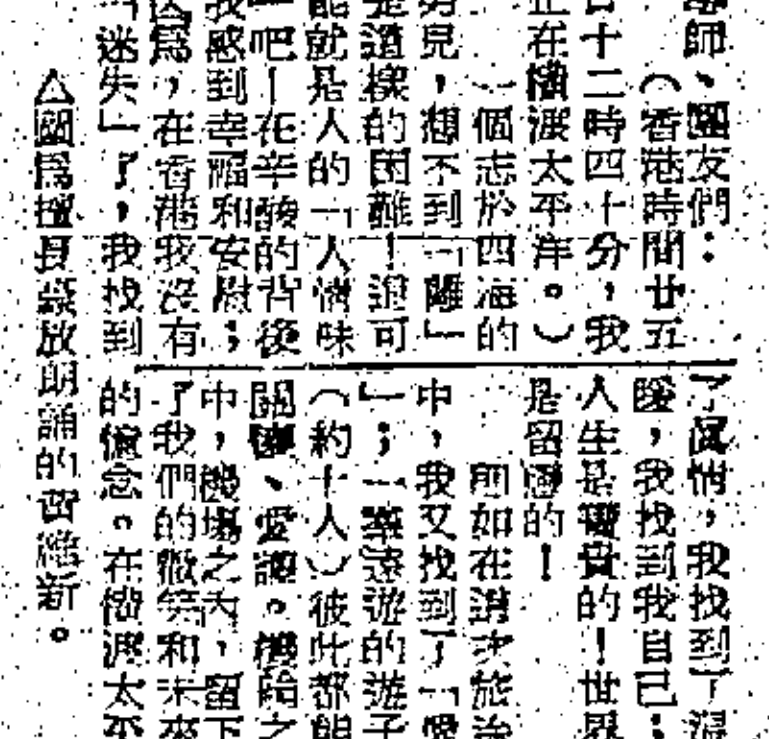 師、團友們：
（香港時間廿五
日十二時四十分，我
正在橫渡太平洋。）
一個志於四海的
男兒，想不到「離」
是這樣的困難！這可
能就是人的「人情味
」吧！在辛酸的背後
我感到幸福和安慰；
因爲，在香港我沒有
「迷失」了，我找到
了眞情，我找到了溫
暖，我找到我自己；
人生是寶貴的！世界
是留戀的！
如在這次旅途
中，我又找到了「愛
」；一羣遠遊的遊子
（約十人）彼此都能
關懷、愛護。機艙之
中，機場之內，留下
了我們的微笑和未來
的懷念。在橫渡太平
△圖爲擅長豪放朗誦的維新。